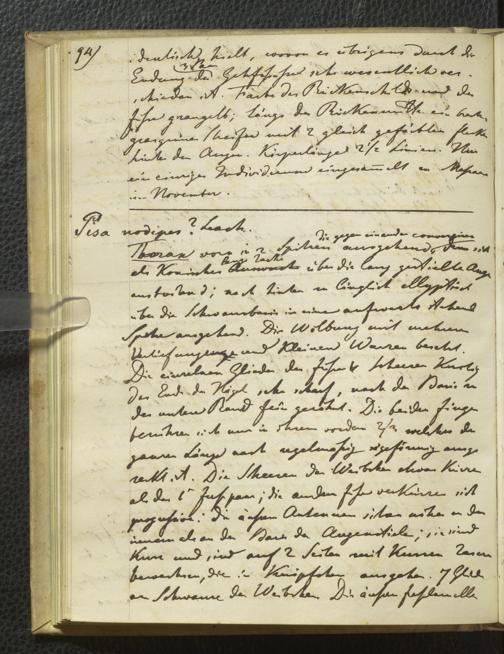 94)
identisch hielt, wovon es übrigens durch die
Endung der 3ten Gehfüsse sehr wesentlich ver-
schieden ist. Farbe des Rückenschildes und der
Füsse graugelb; längs der Rückenmitte ein
grasgrüner Streifen mit 2 gleich gefärbten
hinter den Augen. Körperlänge 2½ Linien. Nur
ein einziges Individuum eingesammelt in
im November.
Pisa nodipes? Leach.
Thorax vorn in 2 Spitzen ausgehend, die gegen einander convergiren
als konisches über die lang gestielte Augen
; nach hinten länglich elliptisch
über die Schwanzbasis in eine aufwärts stehend
Spitze ausgehend. Die Wölbung mit mehrern
Vertiefungen und kleinen Warzen besetzt.
Die einzelnen Glieder der Füsse u Scheeren knotig
Das Ende der Nägel sehr scharf, nach der Basis zu
der untere Rand fein gezähnt. Die beiden Finger
berühren sich nur in ihrem vordern 2/3 welches der
ganzen Länge nach regelmäßig sägeförmig ausge
zackt ist. Die Scheeren der Weibchen etwas kürzer
als das 1ste Fusspaar; die andern Füsse verkürzen sich
progressiv. Die äussern Antennen sitzen näher an den
innern als an der Basis der Augenstiele; sie sind
kurz und sind auf 2 Seiten mit kurzen
bewachsen, die in Knöpfchen ausgehen. 7 Glieder
am Schwanze der Weibchen. Die äussern